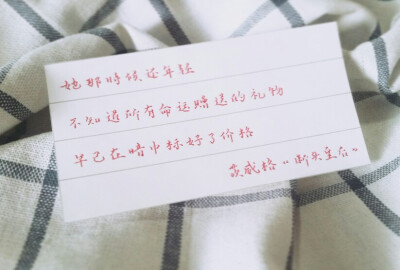 她那时候还年轻
不知道所有命运赠送的礼物
早已在暗中标好了价格
茨威格“断头皇后”